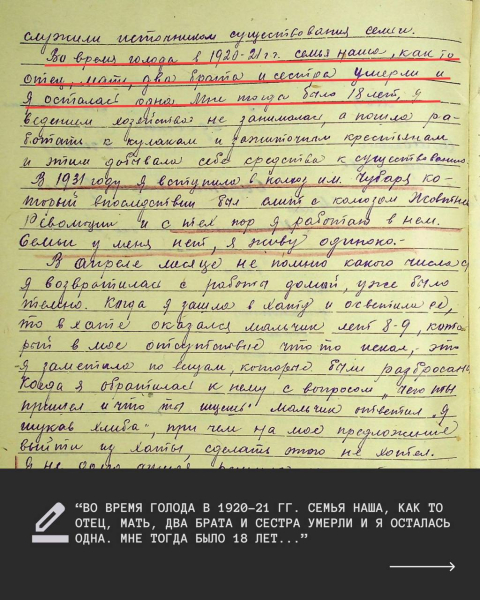 служили источником существования семьи.
Во время голода в 1920-21 гг. семья наша, как то
отец, мать, два брата и сестра умерли и
я осталась одна. Мне тогда было 18 лет, я
ведением хозяйства не занималась, а пошла ра-
ботать к кулакам и зажиточным крестьянам
и этим добывала себе средства к существованию.
В 1931 году я вступила в колхоз им. Чубаря ко-
торый впоследствии был слит с колхозом Жовтнева
Революция и с тех пор я работаю в нем.
Семьи у меня нет, я живу одиноко.-
В апреле месяце не помню какого числа
я возвратилась с работы домой, уже было
темно. Когда я зашла в хату и осветила ее,
то в хате оказался мальчик лет 8-9, кото-
рый в мое отсутствие что то искал, это
я заметила по вещам, которые были разбросаны
Когда я обратилась к нему с вопросом "чего ты
пришел и что ты ищешь" мальчик ответил "я
шукав хлиба", при чем на мое предложение
выйти из хаты, сделать этого не хотел.
"ВО ВРЕМЯ ГОЛОДА В 1920–21 ГГ. СЕМЬЯ НАША, КАК ТО
ОТЕЦ, МАТЬ, ДВА БРАТА И СЕСТРА УМЕРЛИ И Я ОСТАЛАСЬ
ОДНА. МНЕ ТОГДА БЫЛО 18 ЛЕТ..."